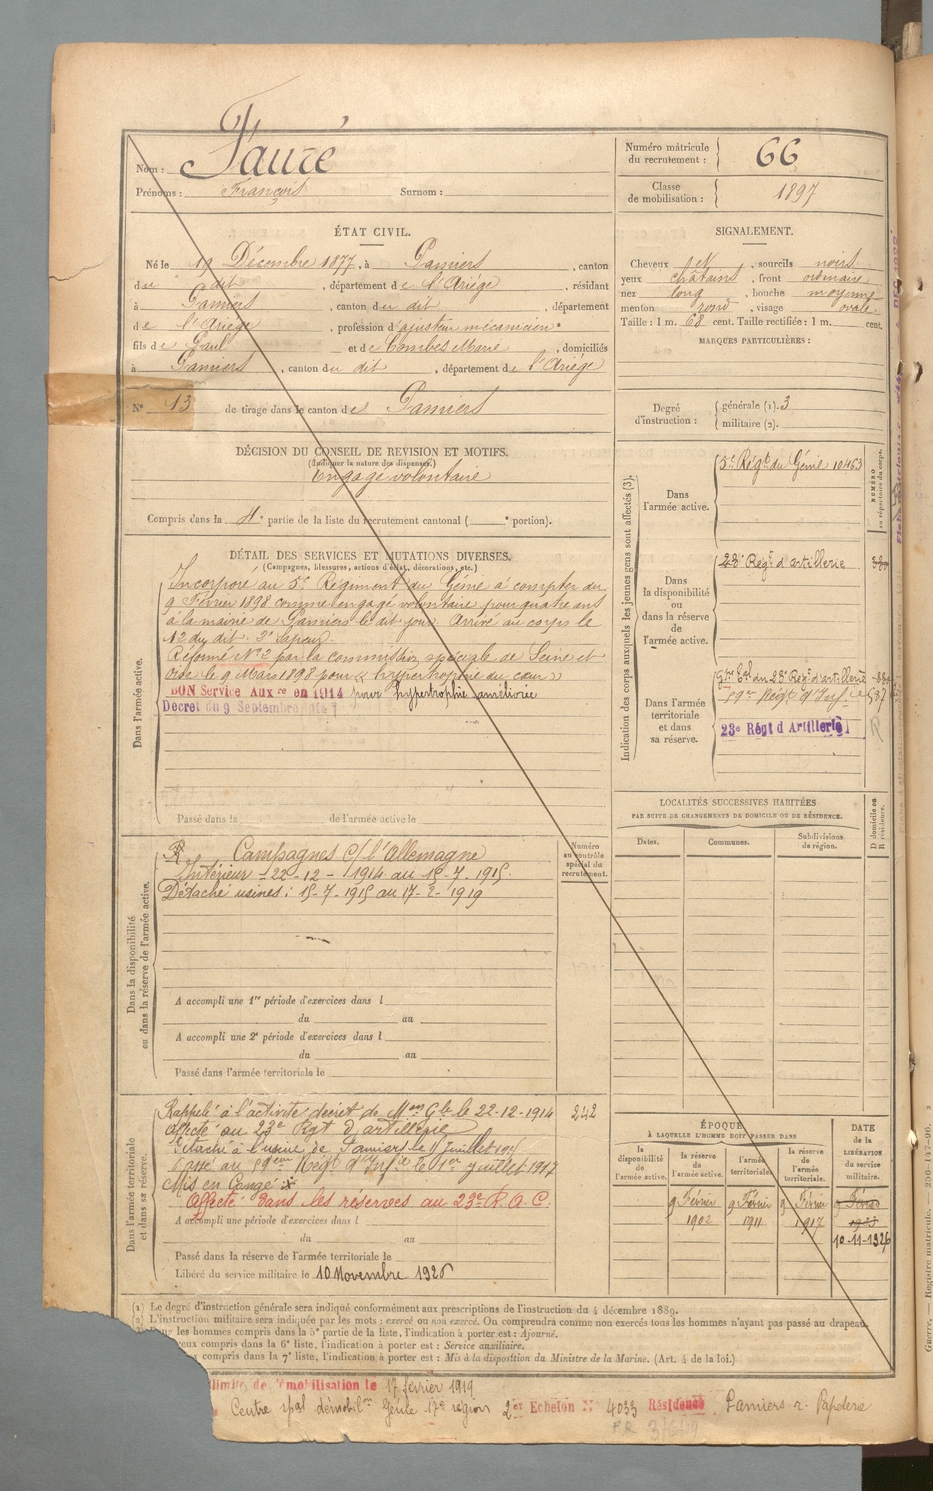 Nom : Fauré
Prénoms : François Surnom :
Numéro matricule du recrutement : 66
Classe de mobilisation : 1897
ÉTAT CIVIL.
Né le 19 Décembre 1877, à Pamiers, canton
du dit, département de l'Ariège, résidant
à Pamiers, canton du dit, département
de l'Ariège, profession d'ajusteur mécanicien
fils de Paul et de Combes Marie, domiciliés
à Pamiers, canton du dit, département de l'Ariège
N° 13 de tirage dans le canton de Pamiers
SIGNALEMENT.
Cheveux et, sourcils noirs
yeux châtains, front ordinaire
nez long, bouche moyenne
menton rond, visage ovale.
Taille : 1 m. 68 cent. Taille rectifiée : 1 m. cent.
MARQUES PARTICULIÈRES :
Degré d'instruction : générale (1). 3
militaire (2).
DÉCISION DU CONSEIL DE REVISION ET MOTIFS.
(Indiquer la nature des dispenses.)
Engagé volontaire
Compris dans la 4e partie de la liste du recrutement cantonal ( e portion).
DÉTAIL DES SERVICES ET MUTATIONS DIVERSES.
(Campagnes, blessures, actions d'éclat, décorations, etc.)
Dans l'armée active.
Incorporé au 5e Régiment du Génie à compter du
9 Février 1898 comme engagé volontaire pour quatre ans
à la mairie de Pamiers le dit jour. Arrivé au corps le
12 du dit. 2e Sapeur.
Réformé N°2 par la commission spéciale de Seine et
Oise le 9 Mars 1898 pour « hypertrophie du cœur »
BON Service Auxre en 1914 pour hypertrophie améliorée
Décret du 9 Septembre 1914
Passé dans la de l'armée active le
Indication des corps auxquels les jeunes gens sont affectés (3).
Dans l'armée active.
5e Régt du Génie 10463
NUMÉRO au répertoire du corps.
Dans la disponibilité ou dans la réserve de l'armée active.
23e Régt d'artillerie
Dans l'armée territoriale et dans sa réserve.
Gpe Tal du 23e Régt d'artillerie
59e Régt d'Infie
23e Régt d Artillerie
LOCALITÉS SUCCESSIVES HABITÉES
PAR SUITE DE CHANGEMENTS DE DOMICILE OU DE RÉSIDENCE.
Dates. Communes. Subdivisions de région.
D domicile ou R résidence.
Dans la disponibilité ou dans la réserve de l'armée active.
Numéro au contrôle spécial du recrutement.
Campagnes c/ l'Allemagne
Intérieur 22-12-1914 au 15-7-1915.
Détaché usines : 15-7-1915 au 17-2-1919
A accompli une 1re période d'exercices dans l
du au
A accompli une 2e période d'exercices dans l
du au
Passé dans l'armée territoriale le
Dans l'armée territoriale et dans sa réserve.
Rappelé à l'activité décret de Mon Gle le 22-12-1914
affecté au 23e Régt d'artillerie
242
Détaché à l'usine de Pamiers le 15 juillet 1915
Passé au 59eme Régt d'Infie le 1er juillet 1917
Mis en Congé
Affecté dans les réserves au 23e R.A.C.
A accompli une période d'exercices dans l
du au
Passé dans la réserve de l'armée territoriale le
Libéré du service militaire le 10 Novembre 1926
ÉPOQUE
À LAQUELLE L'HOMME DOIT PASSER DANS
la disponibilité de l'armée active. la réserve de l'armée active. l'armée territoriale. la réserve de l'armée territoriale.
DATE de la LIBÉRATION du service militaire.
9 Février 1902 9 Février 1911 9 Février 1917 9 Février 1923
10-11-1926
(1) Le degré d'instruction générale sera indiqué conformément aux prescriptions de l'instruction du 4 décembre 1889.
(2) L'instruction militaire sera indiquée par les mots : exercé ou non exercé. On comprendra comme non exercés tous les hommes n'ayant pas passé au drapeau.
Pour les hommes compris dans la 5e partie de la liste, l'indication à porter est : Ajourné.
ceux compris dans la 6e liste, l'indication à porter est : Service auxiliaire.
compris dans la 7e liste, l'indication à porter est : Mis à la disposition du Ministre de la Marine. (Art. 4 de la loi.)
limite de démobilisation le 17 février 1919
Centre spal démobilon Génie 17e région 2er Echelon N° 4033 Résidence Pamiers r. Papeterie
Guerre. — Registre matricule. — 350-147-96.